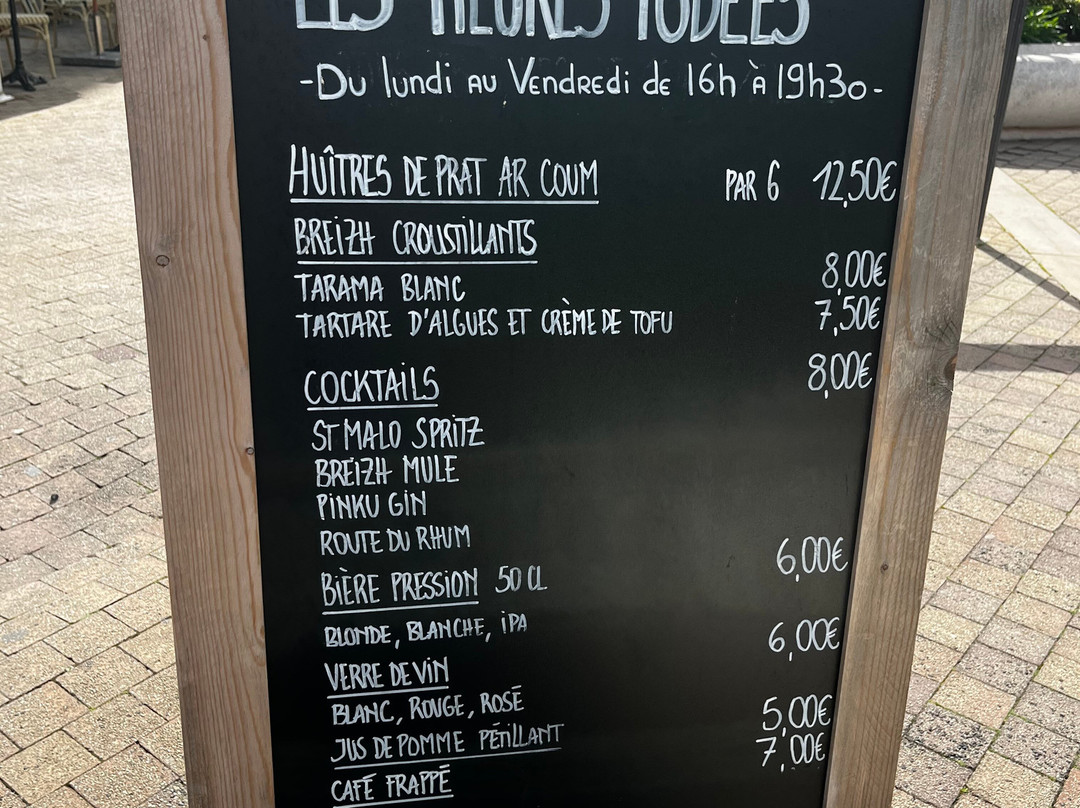 LES HEURES IODÉES
-Du lundi au Vendredi de 16h à 19h30-
HUÎTRES DE PRAT AR COUM PAR 6 12,50€
BREIZH CROUSTILLANTS
TARAMA BLANC 8,00€
TARTARE D'ALGUES ET CRÈME DE TOFU 7,50€
COCKTAILS 8,00€
ST MALO SPRITZ
BREIZH MULE
PINKU GIN
ROUTE DU RHUM
BIÈRE PRESSION 50 CL 6,00€
BLONDE, BLANCHE, IPA
VERRE DE VIN 6,00€
BLANC, ROUGE, ROSÉ
JUS DE POMME PÉTILLANT 5,00€
CAFÉ FRAPPÉ 7,00€